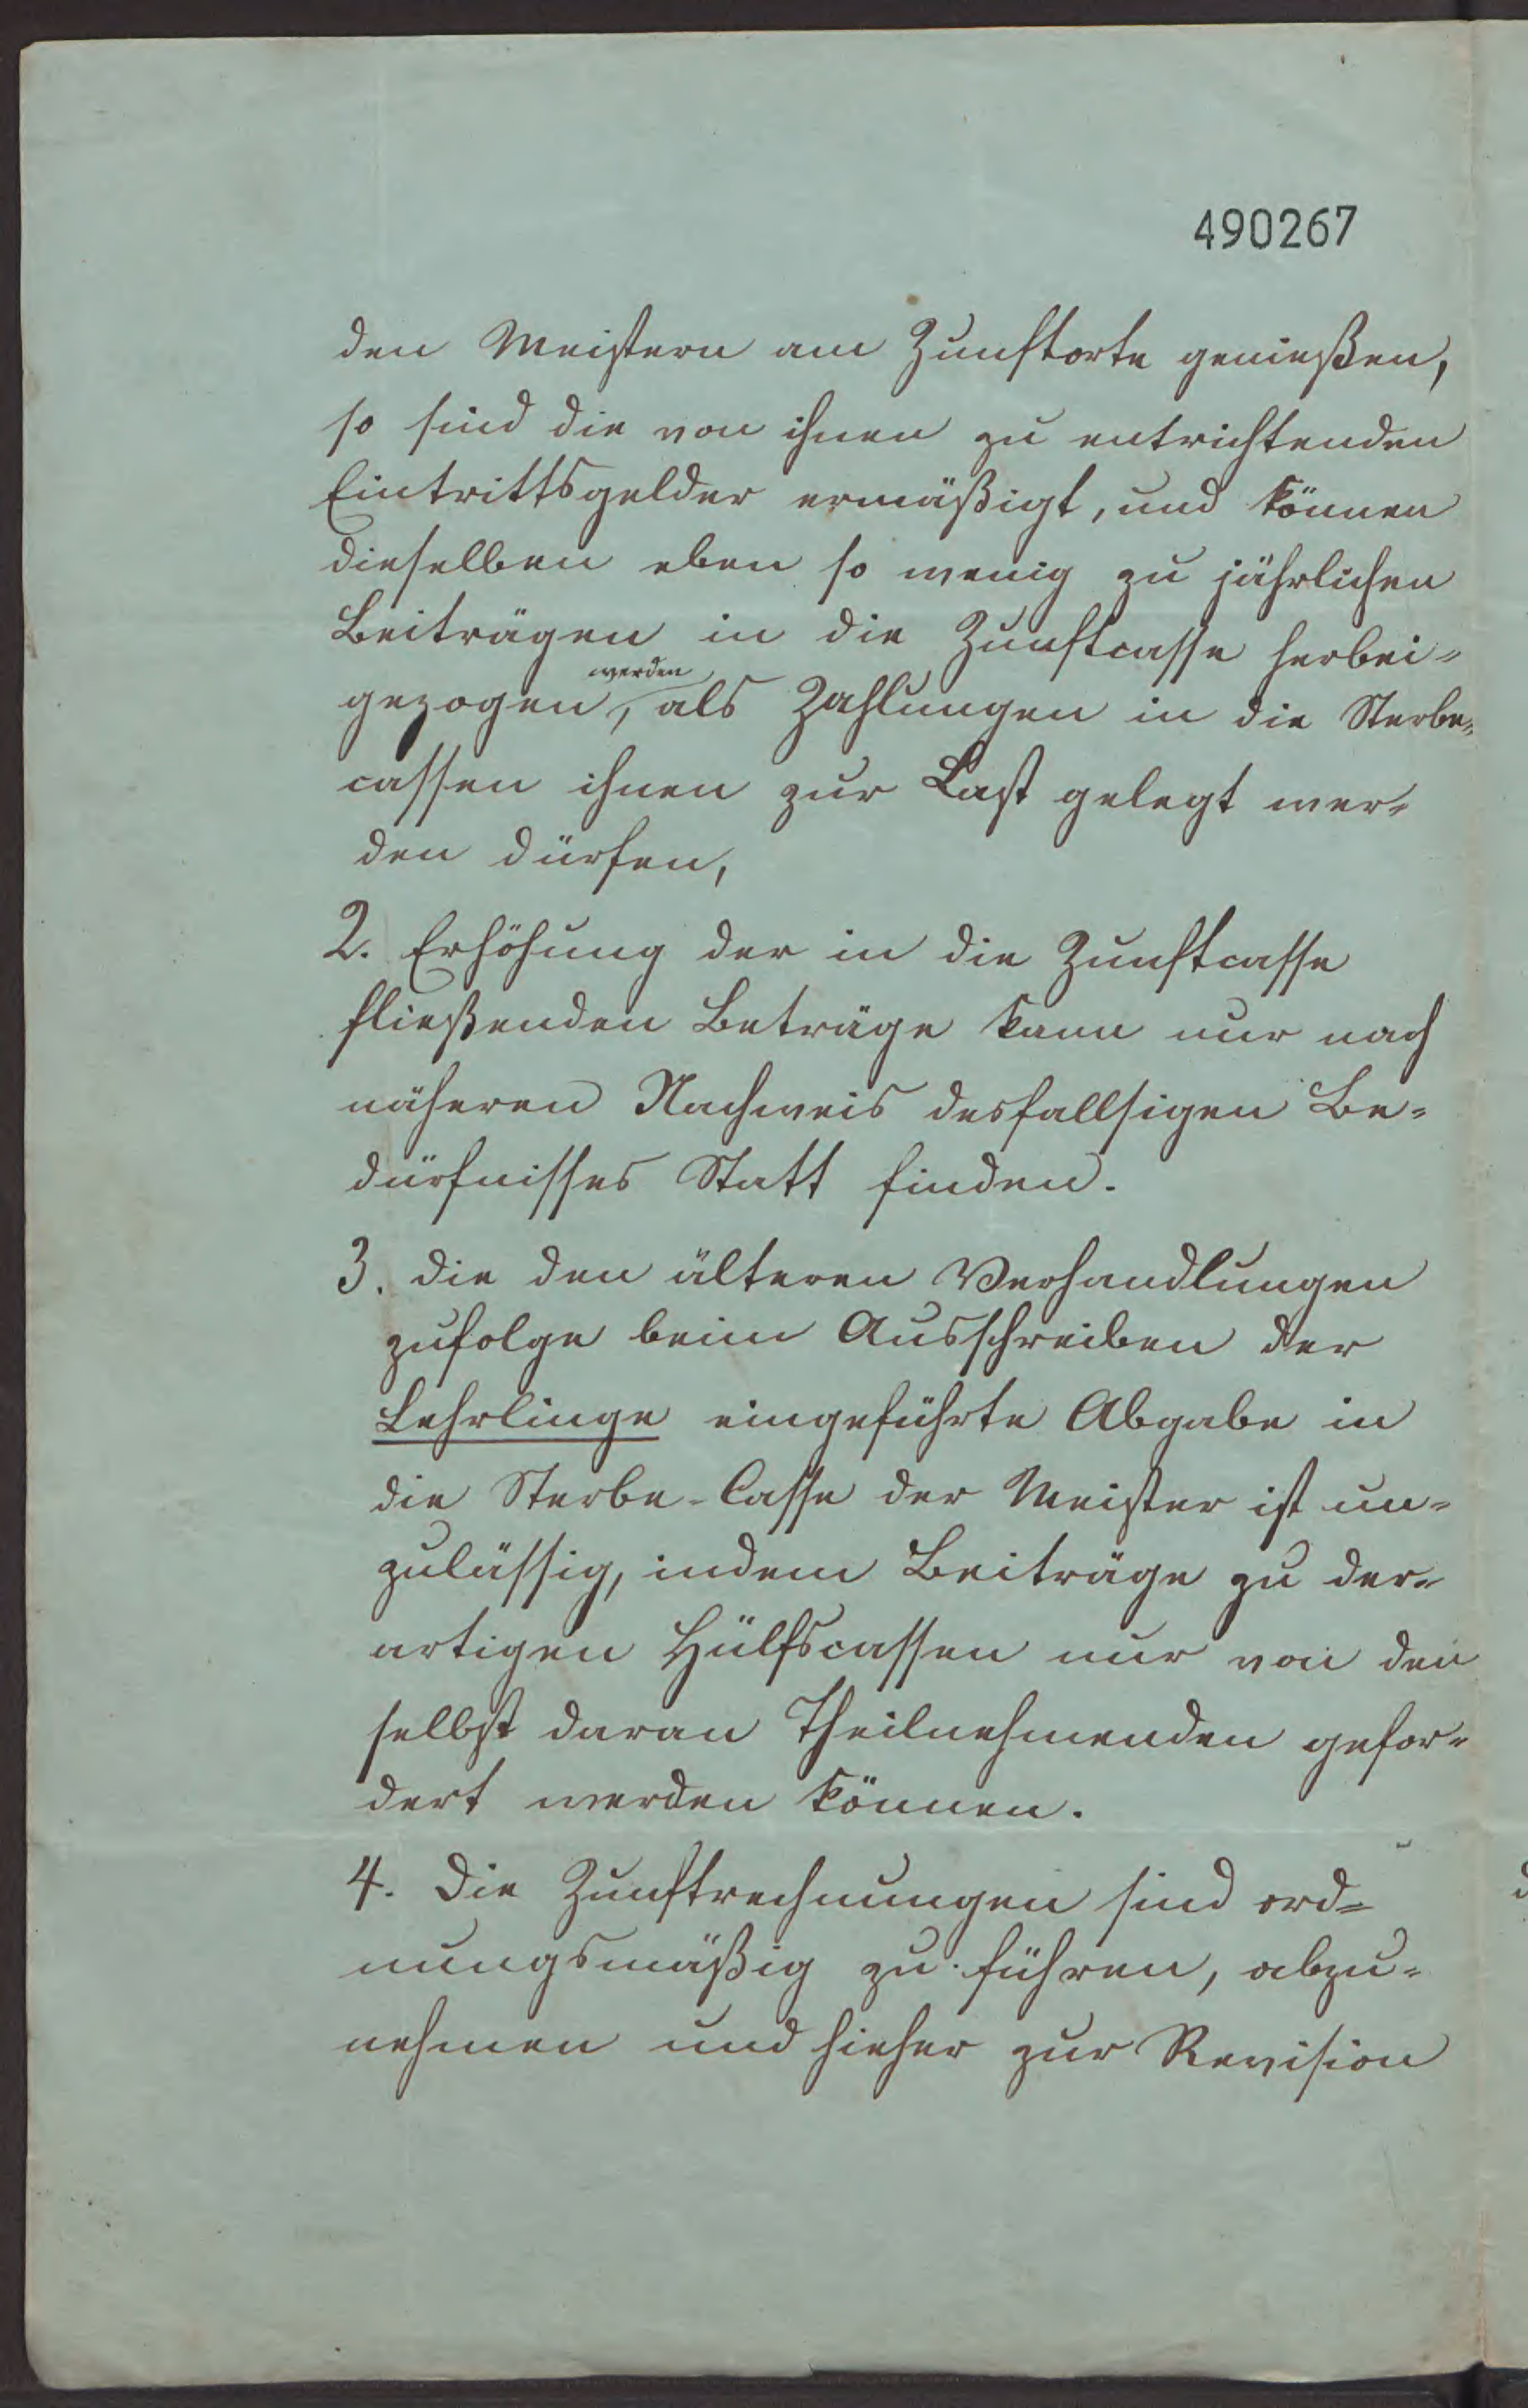 490267
den Meistern am Zunftorte genießen,
so sind die von ihnen zu entrichtenden
Eintrittsgelder ermäßigt, und können
dieselben eben so wenig zu jährlichen
Beiträgen in die Zunftcasse herbei-
werden
gezogen, als Zahlungen in die Sterbe-
cassen ihnen zur Last gelegt wer-
den dürfen,
2. Erhöhung der in die Zunftcasse
fließenden Beträge kann nur nach
näheren Nachweis desfallsigen Be-
dürfnisses Statt finden.
3. die den älteren Verhandlungen
zufolge beim Ausschreiben der
Lehrlinge eingeführte Abgabe in
die Sterbe-Casse der Meister ist un-
zulässig, indem Beiträge zu der-
artigen Hülfscassen nur von den
selbst daran Theilnehmenden gefor-
dert werden können.
4. Die Zunftrechnungen sind ord-
nungsmäßig zu führen, abzu-
nehmen und hieher zur Revision